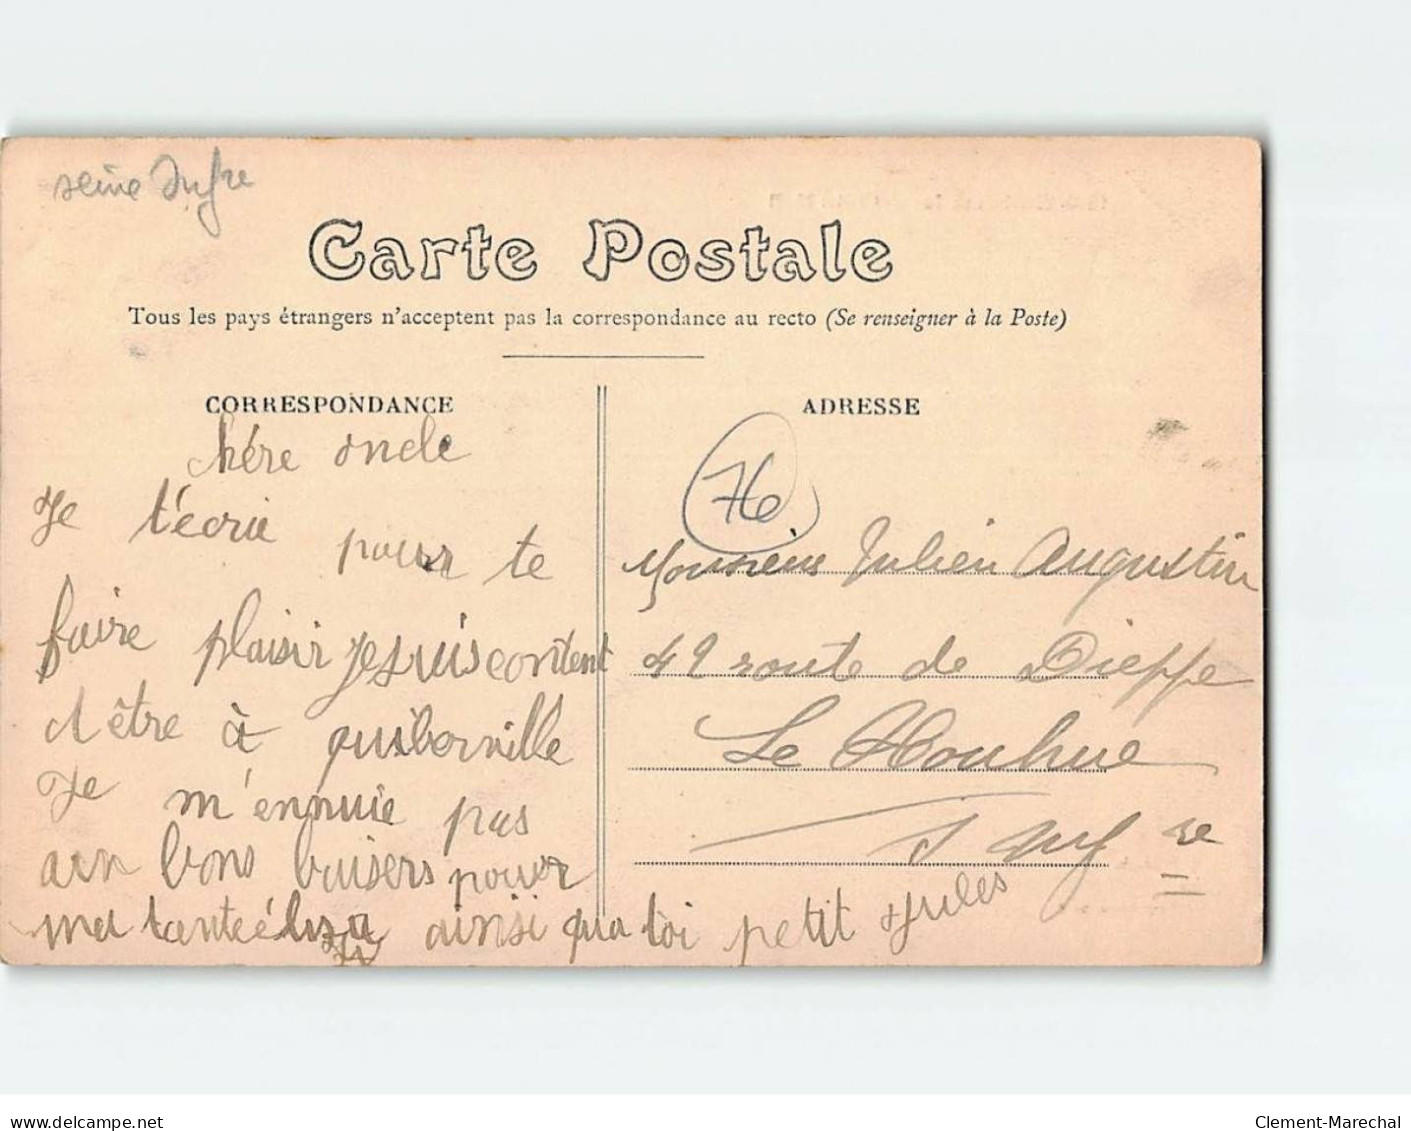 seine Infre
Carte Postale
Tous les pays étrangers n'acceptent pas la correspondance au recto (Se renseigner à la Poste)
CORRESPONDANCE
chére oncle
Je t'écrie
pour te
faire plaisir Je suis content
d'être à quiberville
Je m'ennuie pas
bons baisers pour
ma tante élisa ainsi qua toi petit Jules
ADRESSE
76
Monsieur Julien Augustin
42 route de Dieppe
Le Houlme
S Inf re
www.delcampe.net
Clement-Marechal